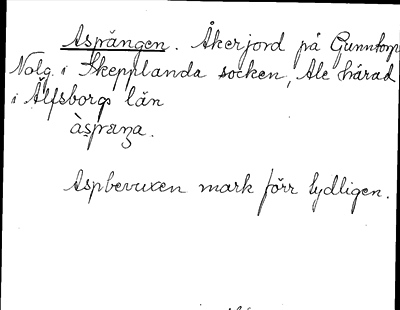 Asprängen. Åkerjord på Gunntorp
Nolg. i Skepplanda socken, Ale härad
i Älfsborgs län
àspræŋa.
Aspbevuxen mark förr tydligen.